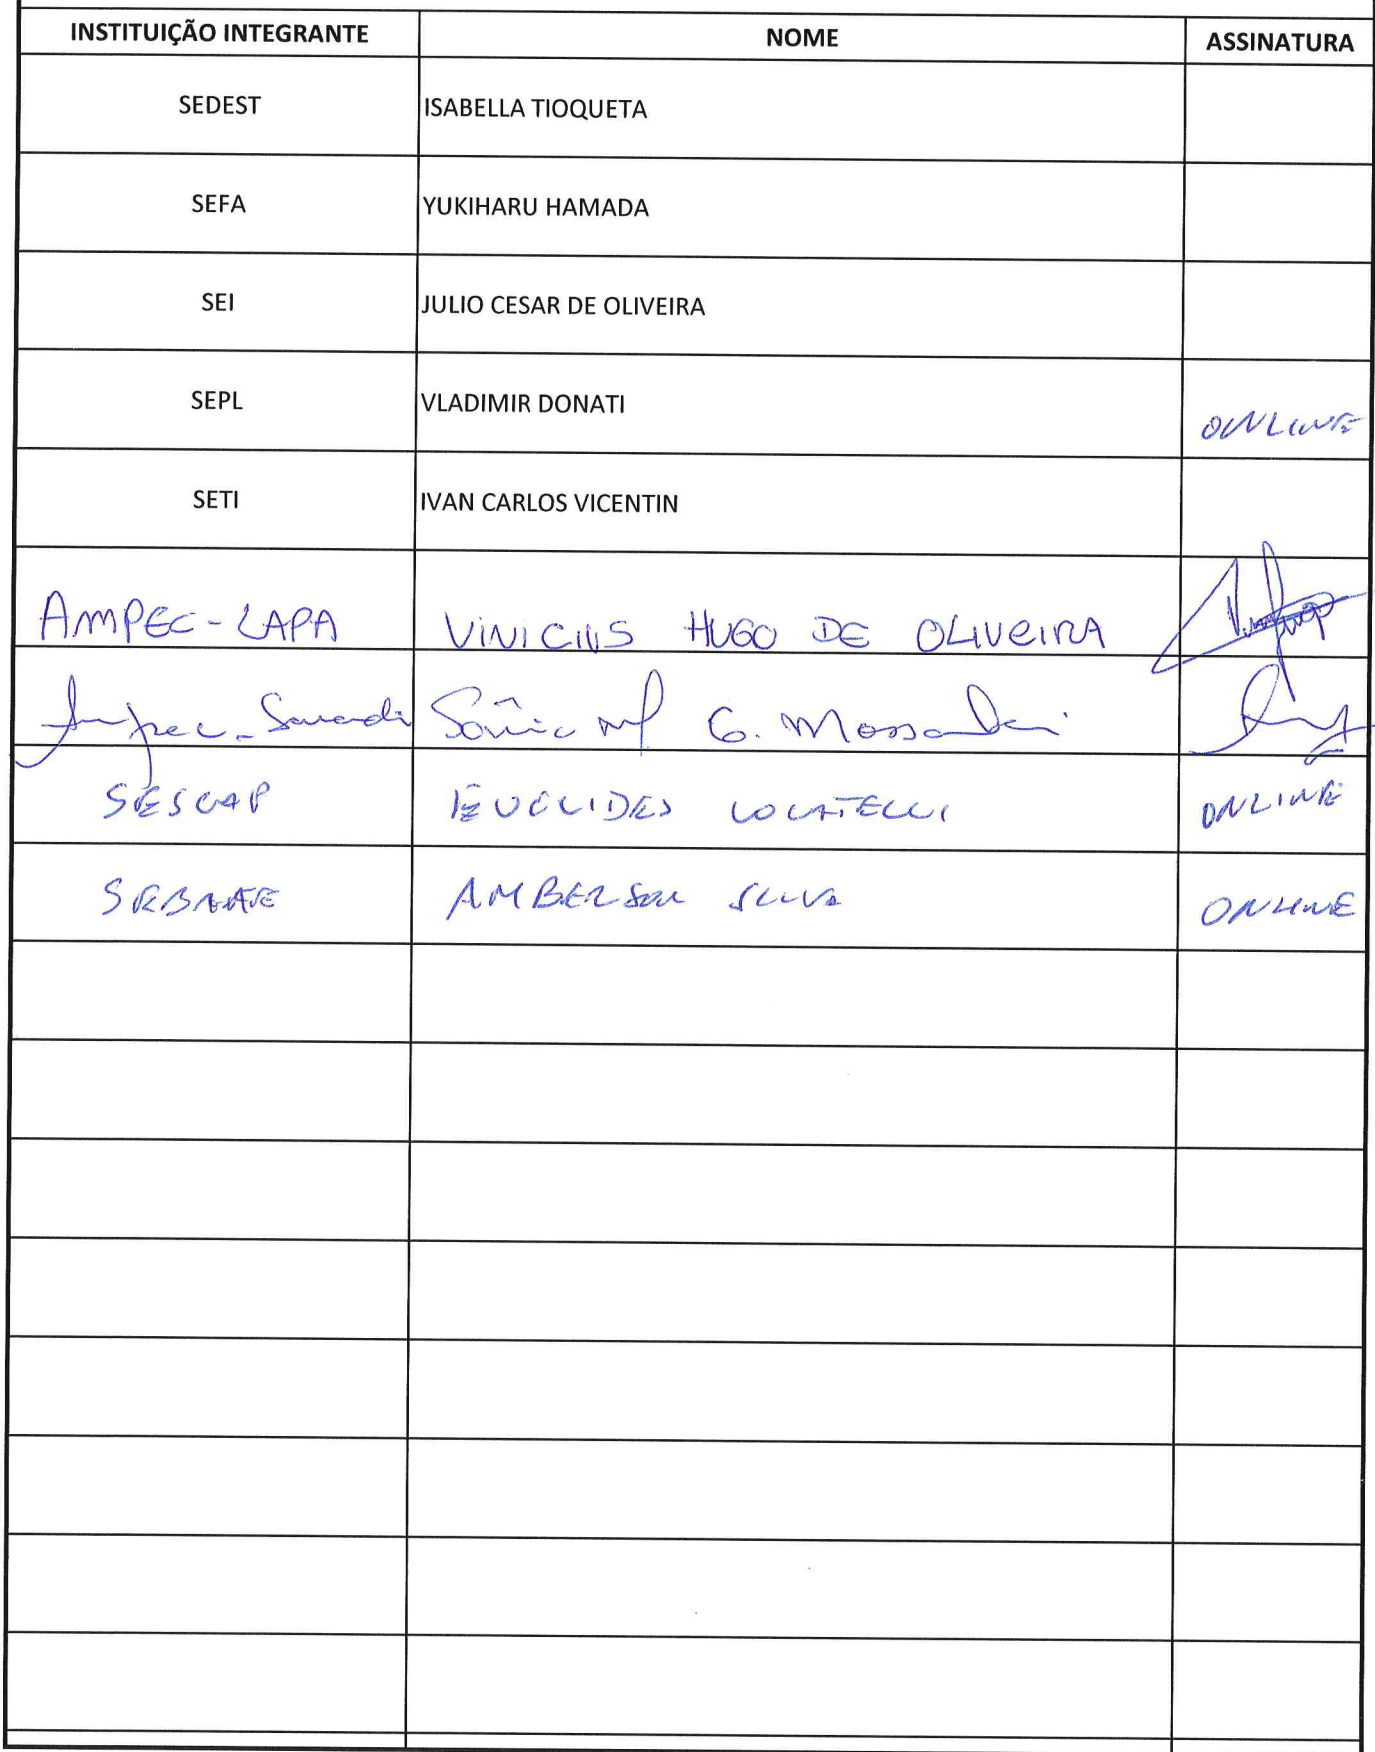 INSTITUIÇÃO INTEGRANTE NOME ASSINATURA
SEDEST ISABELLA TIOQUETA
SEFA YUKIHARU HAMADA
SEI JULIO CESAR DE OLIVEIRA
SEPL VLADIMIR DONATI ONLINE
SETI IVAN CARLOS VICENTIN
AMPEC-LAPA VINICIUS HUGO DE OLIVEIRA
Ampec-Sarandi Sônia G.
SESCAP EUCLIDES LOCATELLI ONLINE
SEBRAE AMBERSON SILVA ONLINE